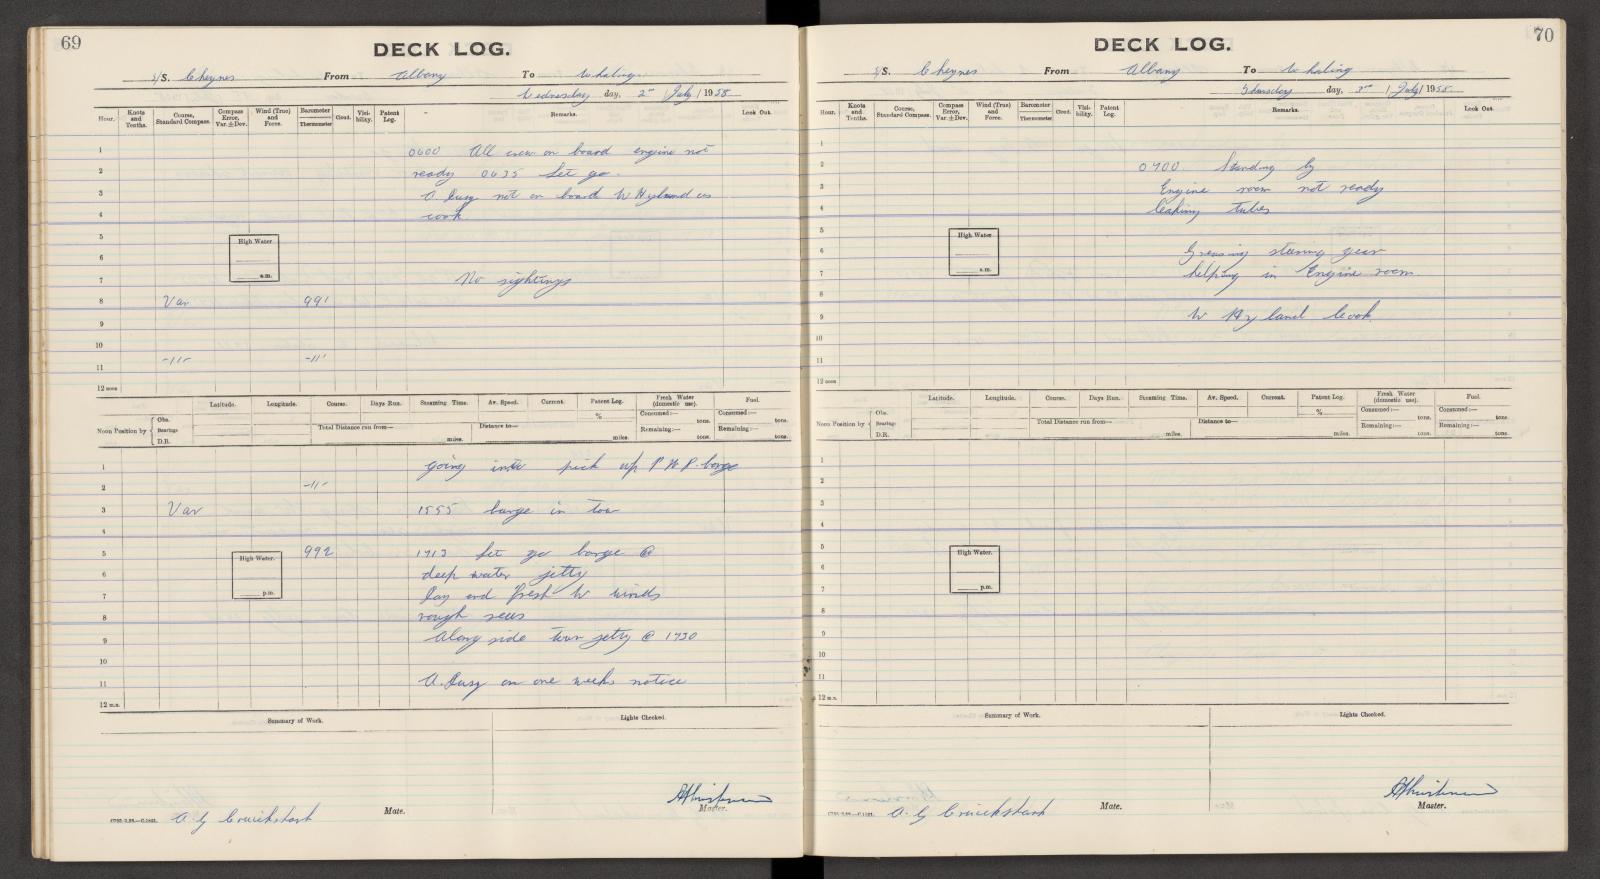 69
DECK LOG.
S/S. Cheynes From Albany To Whaling
Wednesday day, 2nd / July / 1958
Hour. Knots and Tenths. Course, Standard Compass. Compass Error, Var. ± Dev. Wind (True) and Force. Barometer Thermometer Cloud. Visi-bility. Patent Log. Remarks. Look Out.
1 0600 All crew on board engine not
2 ready 0635 Let go.
3 A. not on board W Hyland as
4 cook.
5
High Water
6
a.m.
7 No sightings
8 Var 991
9
10
11 -11- -11-
12 noon
Latitude. Longitude. Course. Days Run. Steaming Time. Av. Speed. Current. Patent Log. Fresh Water (domestic use). Fuel.
Noon Position by { Obs. Bearings D.R.
% Consumed:— tons. Consumed:— tons.
Total Distance run from— miles. Distance to— miles. Remaining:— tons. Remaining:— tons.
1 going into pick up P W P barge
2 -11-
3 Var 1555 barge in tow
4
5 992 1713 Let go barge @
High Water.
6 deep water jetty
p.m.
7 Day end fresh W winds
8 rough seas
9 Along side town jetty @ 1730
10
11 A. on one weeks notice
12 m.n.
Summary of Work. Lights Checked.
A G Cruickshank Mate.
Master.
70
DECK LOG.
S/S. Cheynes From Albany To Whaling
Thursday day, 3rd / July / 1958
Hour. Knots and Tenths. Course, Standard Compass. Compass Error, Var. ± Dev. Wind (True) and Force. Barometer Thermometer Cloud. Visi-bility. Patent Log. Remarks. Look Out.
1
2 0700 Standing by
3 Engine room not ready
4 leaking tubes
5
High Water
6 Greasing steering gear
a.m.
7 helping in Engine room.
8
9 W Hyland Cook.
10
11
12 noon
Latitude. Longitude. Course. Days Run. Steaming Time. Av. Speed. Current. Patent Log. Fresh Water (domestic use). Fuel.
Noon Position by { Obs. Bearings D.R.
% Consumed:— tons. Consumed:— tons.
Total Distance run from— miles. Distance to— miles. Remaining:— tons. Remaining:— tons.
1
2
3
4
5
High Water.
6
p.m.
7
8
9
10
11
12 m.n.
Summary of Work. Lights Checked.
A. G Cruickshank Mate.
Master.